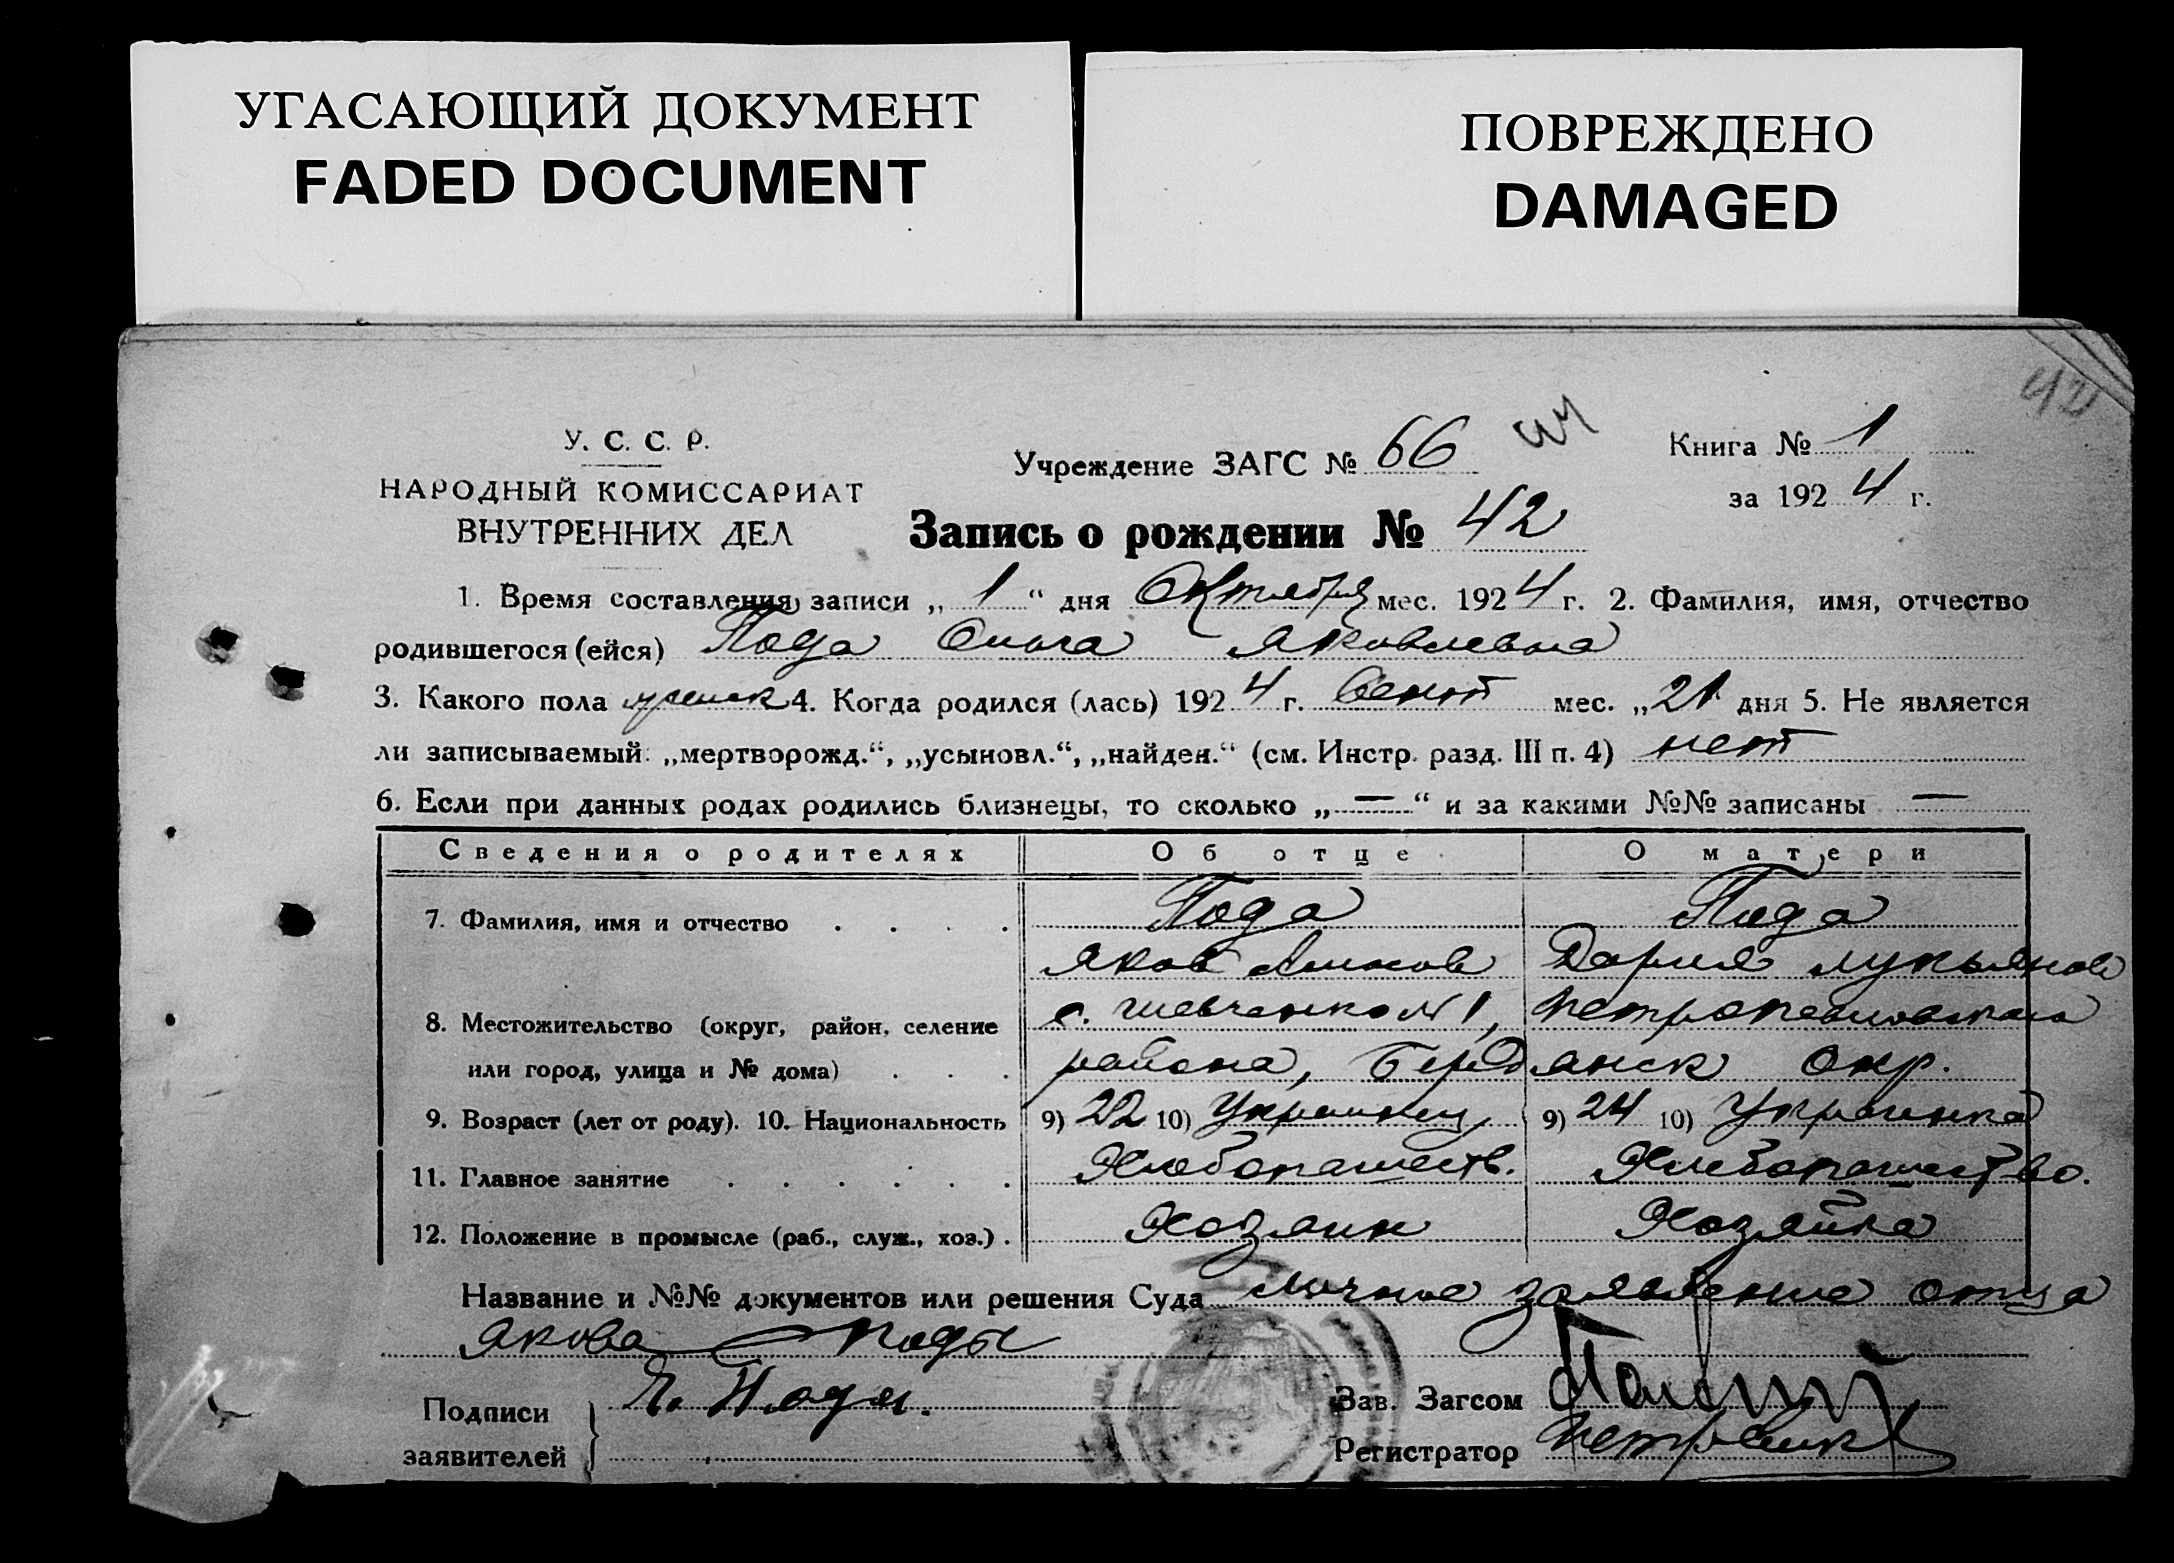 УГАСАЮЩИЙ ДОКУМЕНТ
FADED DOCUMENT
ПОВРЕЖДЕНО
DAMAGED
42
У. С. С. Р.
НАРОДНЫЙ КОМИССАРИАТ
ВНУТРЕННИХ ДЕЛ
Учреждение ЗАГС № 66
Книга № 1
за 1924 г.
Запись о рождении № 42
1. Время составления записи „ 1 “ дня Октября мес. 1924 г. 2. Фамилия, имя, отчество
родившегося (ейся) Пода Ольга Яковлевна
3. Какого пола женск 4. Когда родился (лась) 1924 г. Сент мес. „21 дня 5. Не является
ли записываемый: „мертворожд.“, „усыновл.“, „найден.“ (см. Инстр. разд. III п. 4) нет
6. Если при данных родах родились близнецы, то сколько „—“ и за какими №№ записаны —
Сведения о родителях Об отце О матери
7. Фамилия, имя и отчество . . . . Пода Пода
Яков Дария Лукьянов
8. Местожительство (округ, район, селение с. Шевченко № 1, Петропавловского
или город, улица и № дома) . . . района, Бердянск окр.
9. Возраст (лет от роду). 10. Национальность 9) 22 10) Украинец 9) 24 10) Украинка
11. Главное занятие . . . . . . Хлебопашеств. Хлебопашество.
12. Положение в промысле (раб., служ., хоз.) . Хозяин Хозяйка
Название и №№ документов или решения Суда Личное заявление отца
Якова Поды
Подписи
заявителей
Я. Пода.
Зав. Загсом
Регистратор